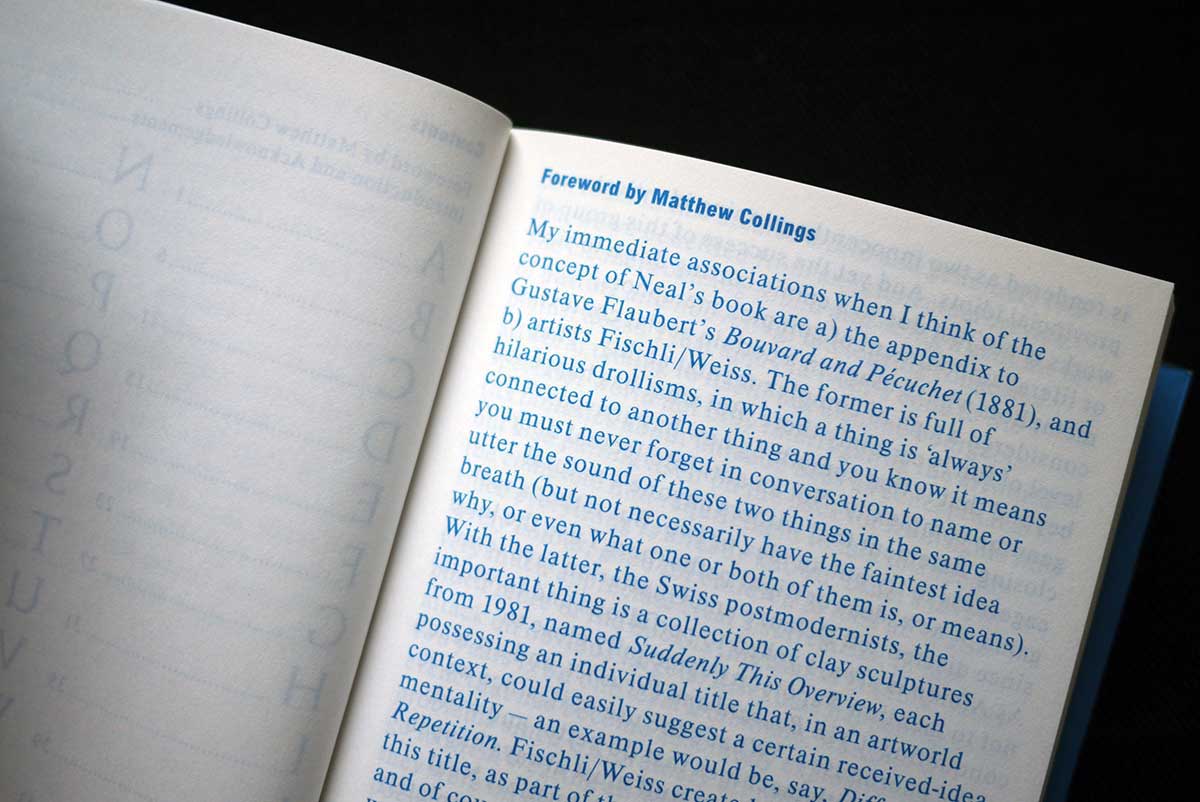 Contents
Foreword by Matthew Collings
Introduction and Acknowledgements
A
B
C
D
E
F
G
H
I
N
O
P
Q
R
S
T
U
V
Foreword by Matthew Collings
My immediate associations when I think of the
concept of Neal’s book are a) the appendix to
Gustave Flaubert’s Bouvard and Pécuchet (1881), and
b) artists Fischli/Weiss. The former is full of
hilarious drollisms, in which a thing is ‘always’
connected to another thing and you know it means
you must never forget in conversation to name or
utter the sound of these two things in the same
breath (but not necessarily have the faintest idea
why, or even what one or both of them is, or means).
With the latter, the Swiss postmodernists, the
important thing is a collection of clay sculptures
from 1981, named Suddenly This Overview, each
possessing an individual title that, in an artworld
context, could easily suggest a certain received-idea
mentality — an example would be, say,
Repetition. Fischli/Weiss created
this title, as part of
and of